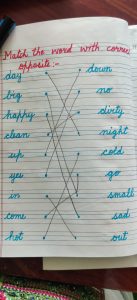 Match the word with correct
opposite:-
day down
big no
happy dirty
clean night
up cold
yes go
in small
come sad
hot out